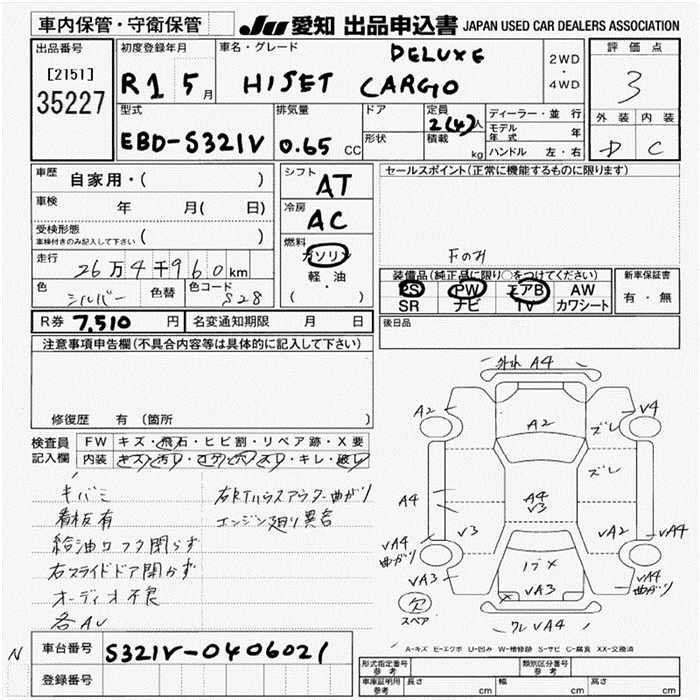 車内保管・守衛保管
JU 愛知 出品申込書 JAPAN USED CAR DEALERS ASSOCIATION
出品番号
[2151]
35227
初度登録年月
R1 5月
車名・グレード
DELUXE
HIJET CARGO
2WD
・
4WD
評価点
3
外装 内装
D C
型式
EBD-S321V
排気量
0.65 CC
ドア
形状
定員
2(4)人
積載
kg
ディーラー・並行
モデル年式 年
ハンドル 左・右
車歴
自家用・( )
車検
年 月( 日)
受検形態
車検付きのみ記入して下さい ( )
走行
26万4千960km
色
シルバー
色替
色コード
S28
シフト
AT
冷房
AC
燃料
ガソリン
軽・油
( ・ )
セールスポイント(正常に機能するものに限ります)
Fのみ
装備品(純正品に限り○をつけてください)
PS PW エアB AW
SR ナビ TV カワシート
新車保証書
有・無
R券 7,510 円 名変通知期限 月 日
後日品
注意事項申告欄(不具合内容等は具体的に記入して下さい)
修復歴 有 (箇所 )
検査員記入欄
FW キズ・飛石・ヒビ割・リペア跡・X要
内装 キズ・汚レ・コゲ・穴・スレ・キレ・破レ
キバミ
看板有
給油口フタ閉らず
右スライドドア開かず
オーディオ不良
各AU
右RTハウスアウター曲がり
エンジン廻り異音
外れ A4
A2
V4
A2
ズレ
ズレ
A4
A4
V3
V3
VA2
VA4
VA4
曲がり
VA3
VA3
VA4
曲がり
欠
スペア
ワレ VA4
A-キズ E-エクボ U-凹み W-補修跡 S-サビ C-腐食 XX-交換済
N
車台番号
S321V-0406021
登録番号
形式指定番号
参考
類別区分番号
参考
車庫証明用
参考
長さ cm 幅 cm 高さ cm